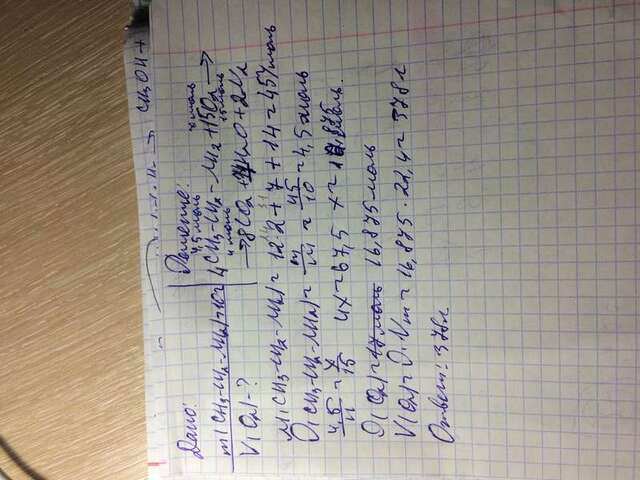 CH₃OH +
Дано:
Решение:
m(CH₃-CH₂-NH₂)=10г
4,5 моль х моль
4CH₃-CH₂-NH₂ + 15O₂ →
4 моль 15 моль
V(O₂)-?
→ 8CO₂ + 14H₂O + 2N₂
M(CH₃-CH₂-NH₂) = 12·2 + 7 + 14 = 45г/моль
υ(CH₃-CH₂-NH₂) = m/M = 45/10 = 4,5 моль
4,5/4 = x/15 4x = 67,5 x = 16,875 моль.
υ(O₂) = 16,875 моль
V(O₂) = υ·Vm = 16,875 · 22,4 = 378 л
Ответ: 378л